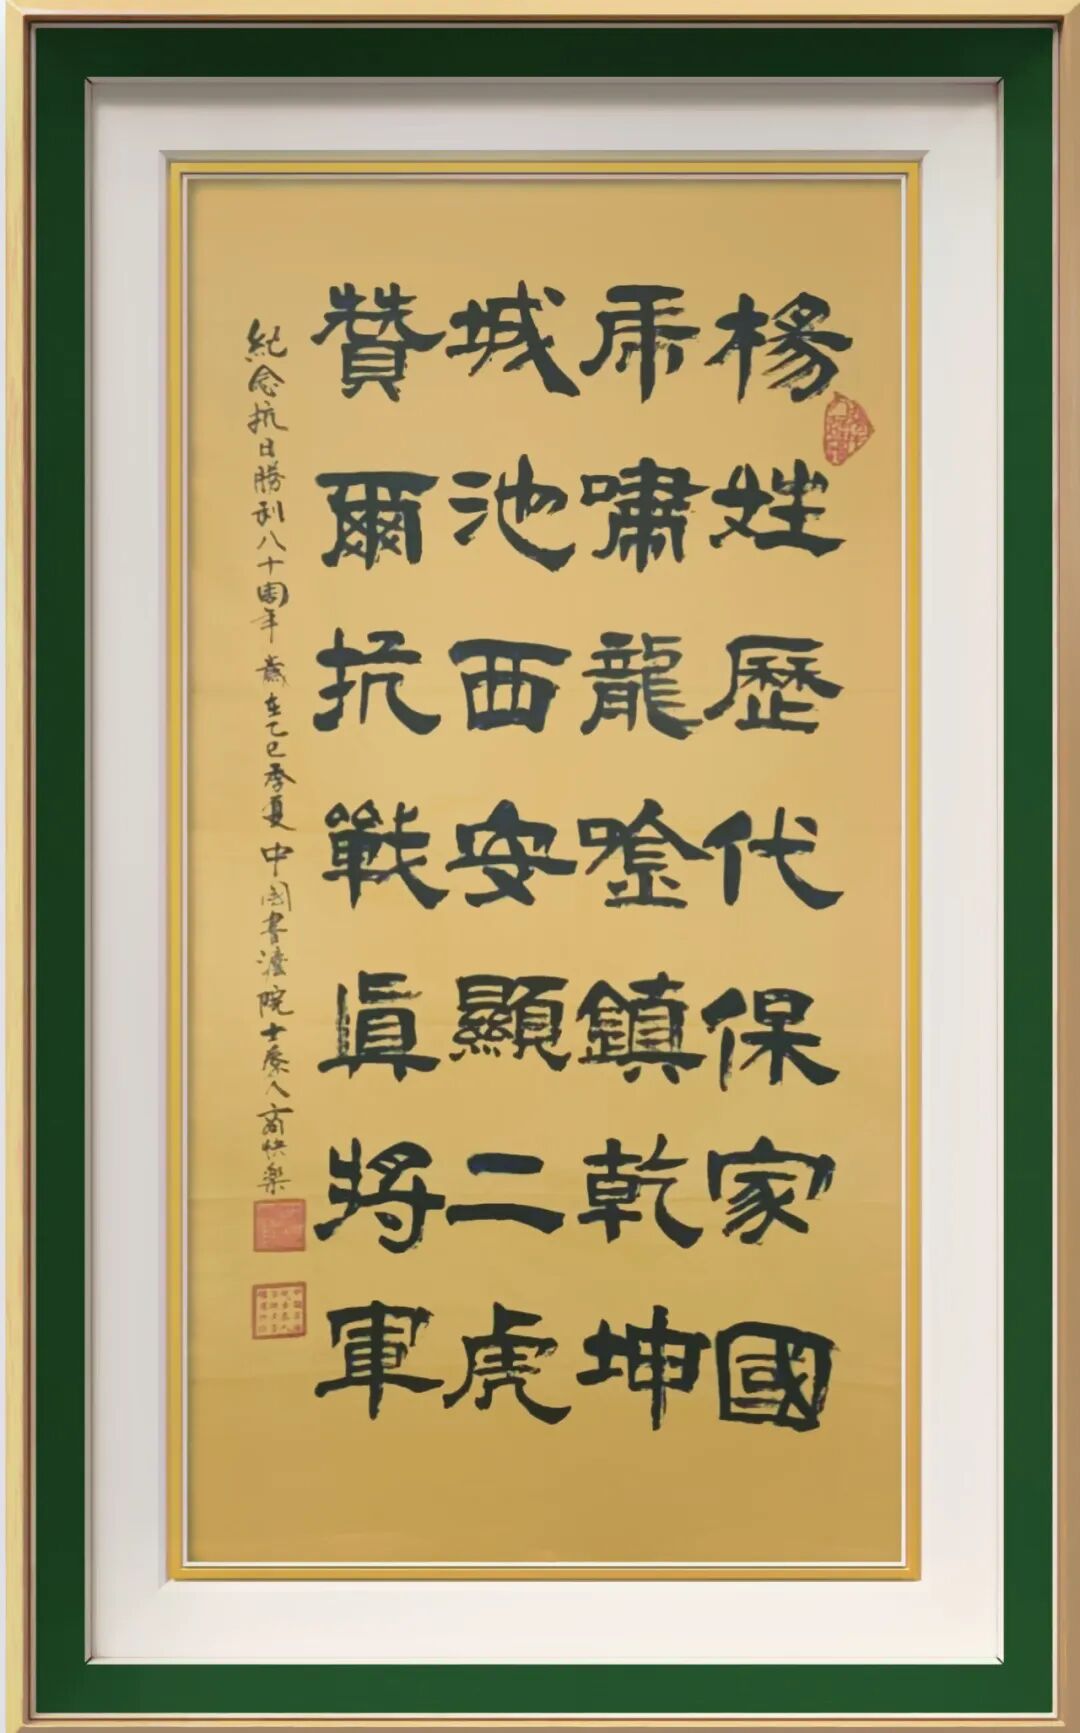 楊姓歷代保家國
虎嘯龍唫鎮乾坤
城池西安顯二虎
贊爾抗戰真將軍
紀念抗日勝利八十周年 歲在乙巳季夏 中國書法院士 人商快樂